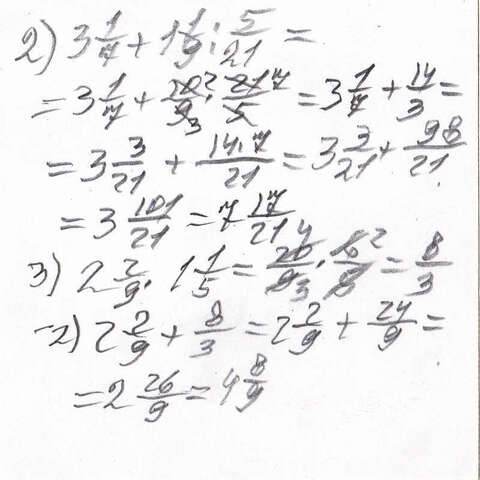 2) 3 1/7 + 1 1/9 : 5/21 =
= 3 1/7 + 10/9 · 21/5 = 3 1/7 + 14/3 =
= 3 3/21 + 14·7/21 = 3 3/21 + 98/21
= 3 101/21 = 7 17/21
3) 2 2/9 · 1 1/5 = 20/9 · 6/5 = 8/3
-2) 2 2/9 + 8/3 = 2 2/9 + 24/9 =
= 2 26/9 = 4 8/9